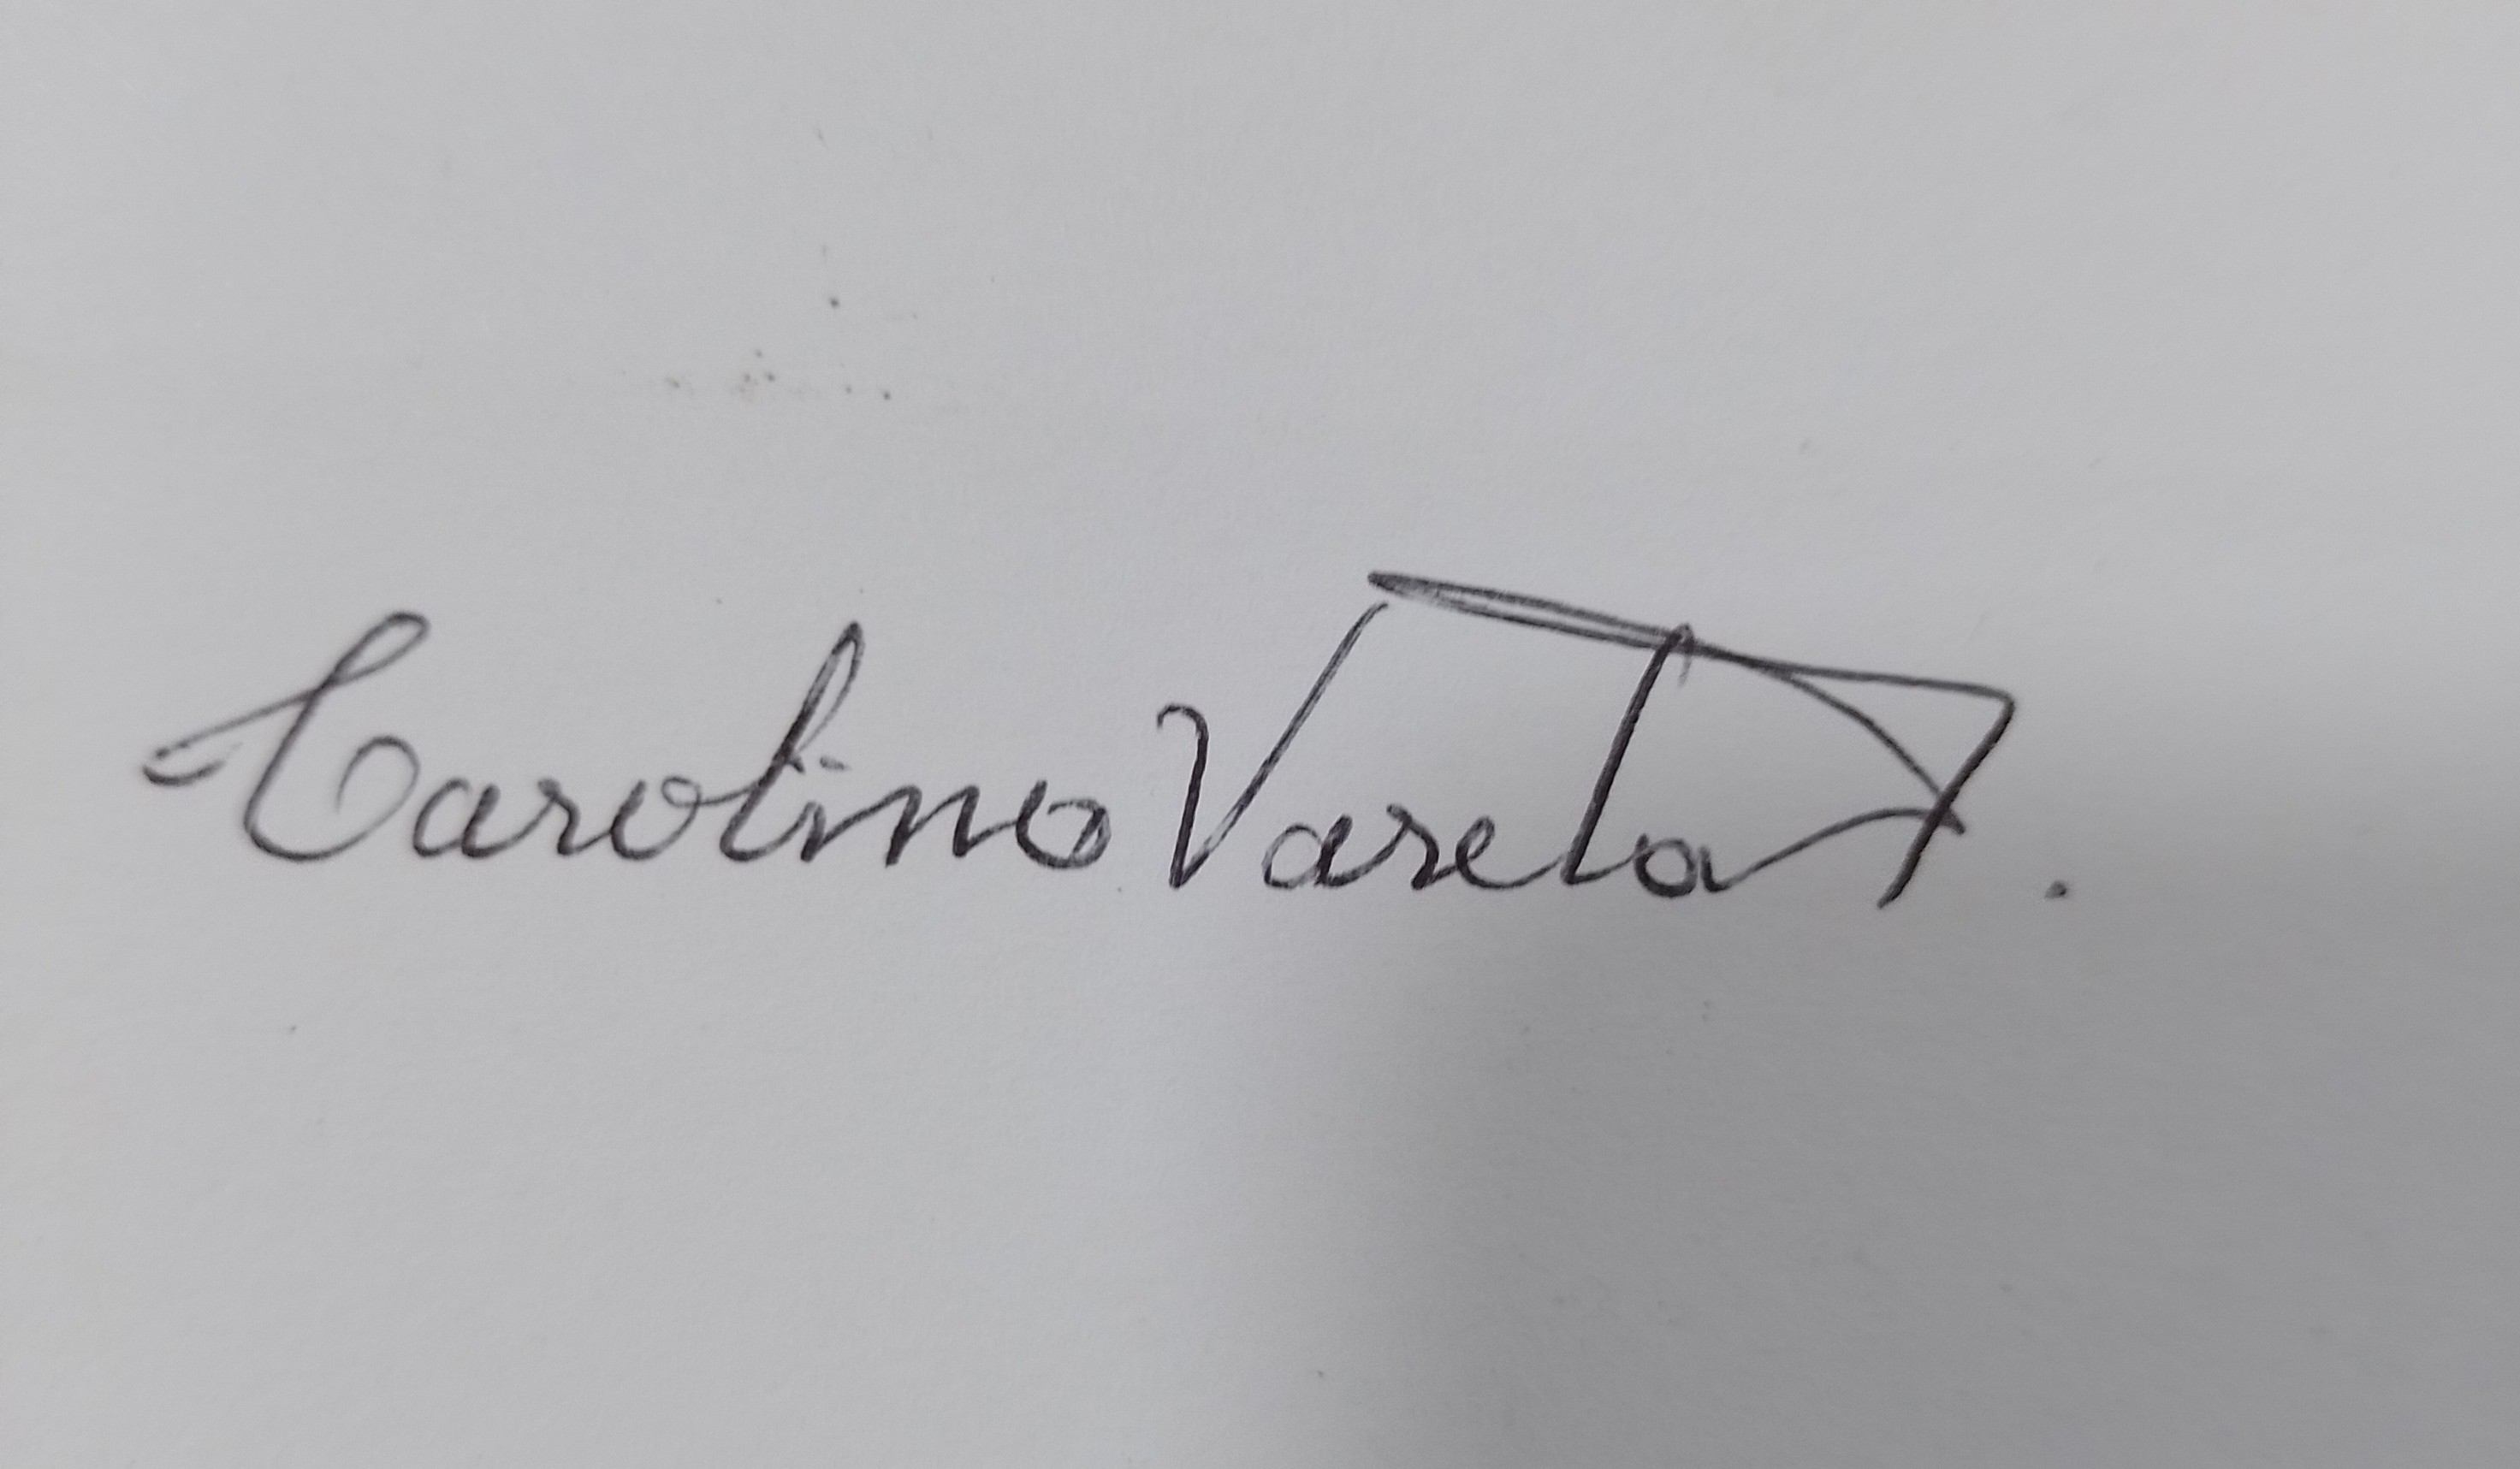 Carolino Varela.